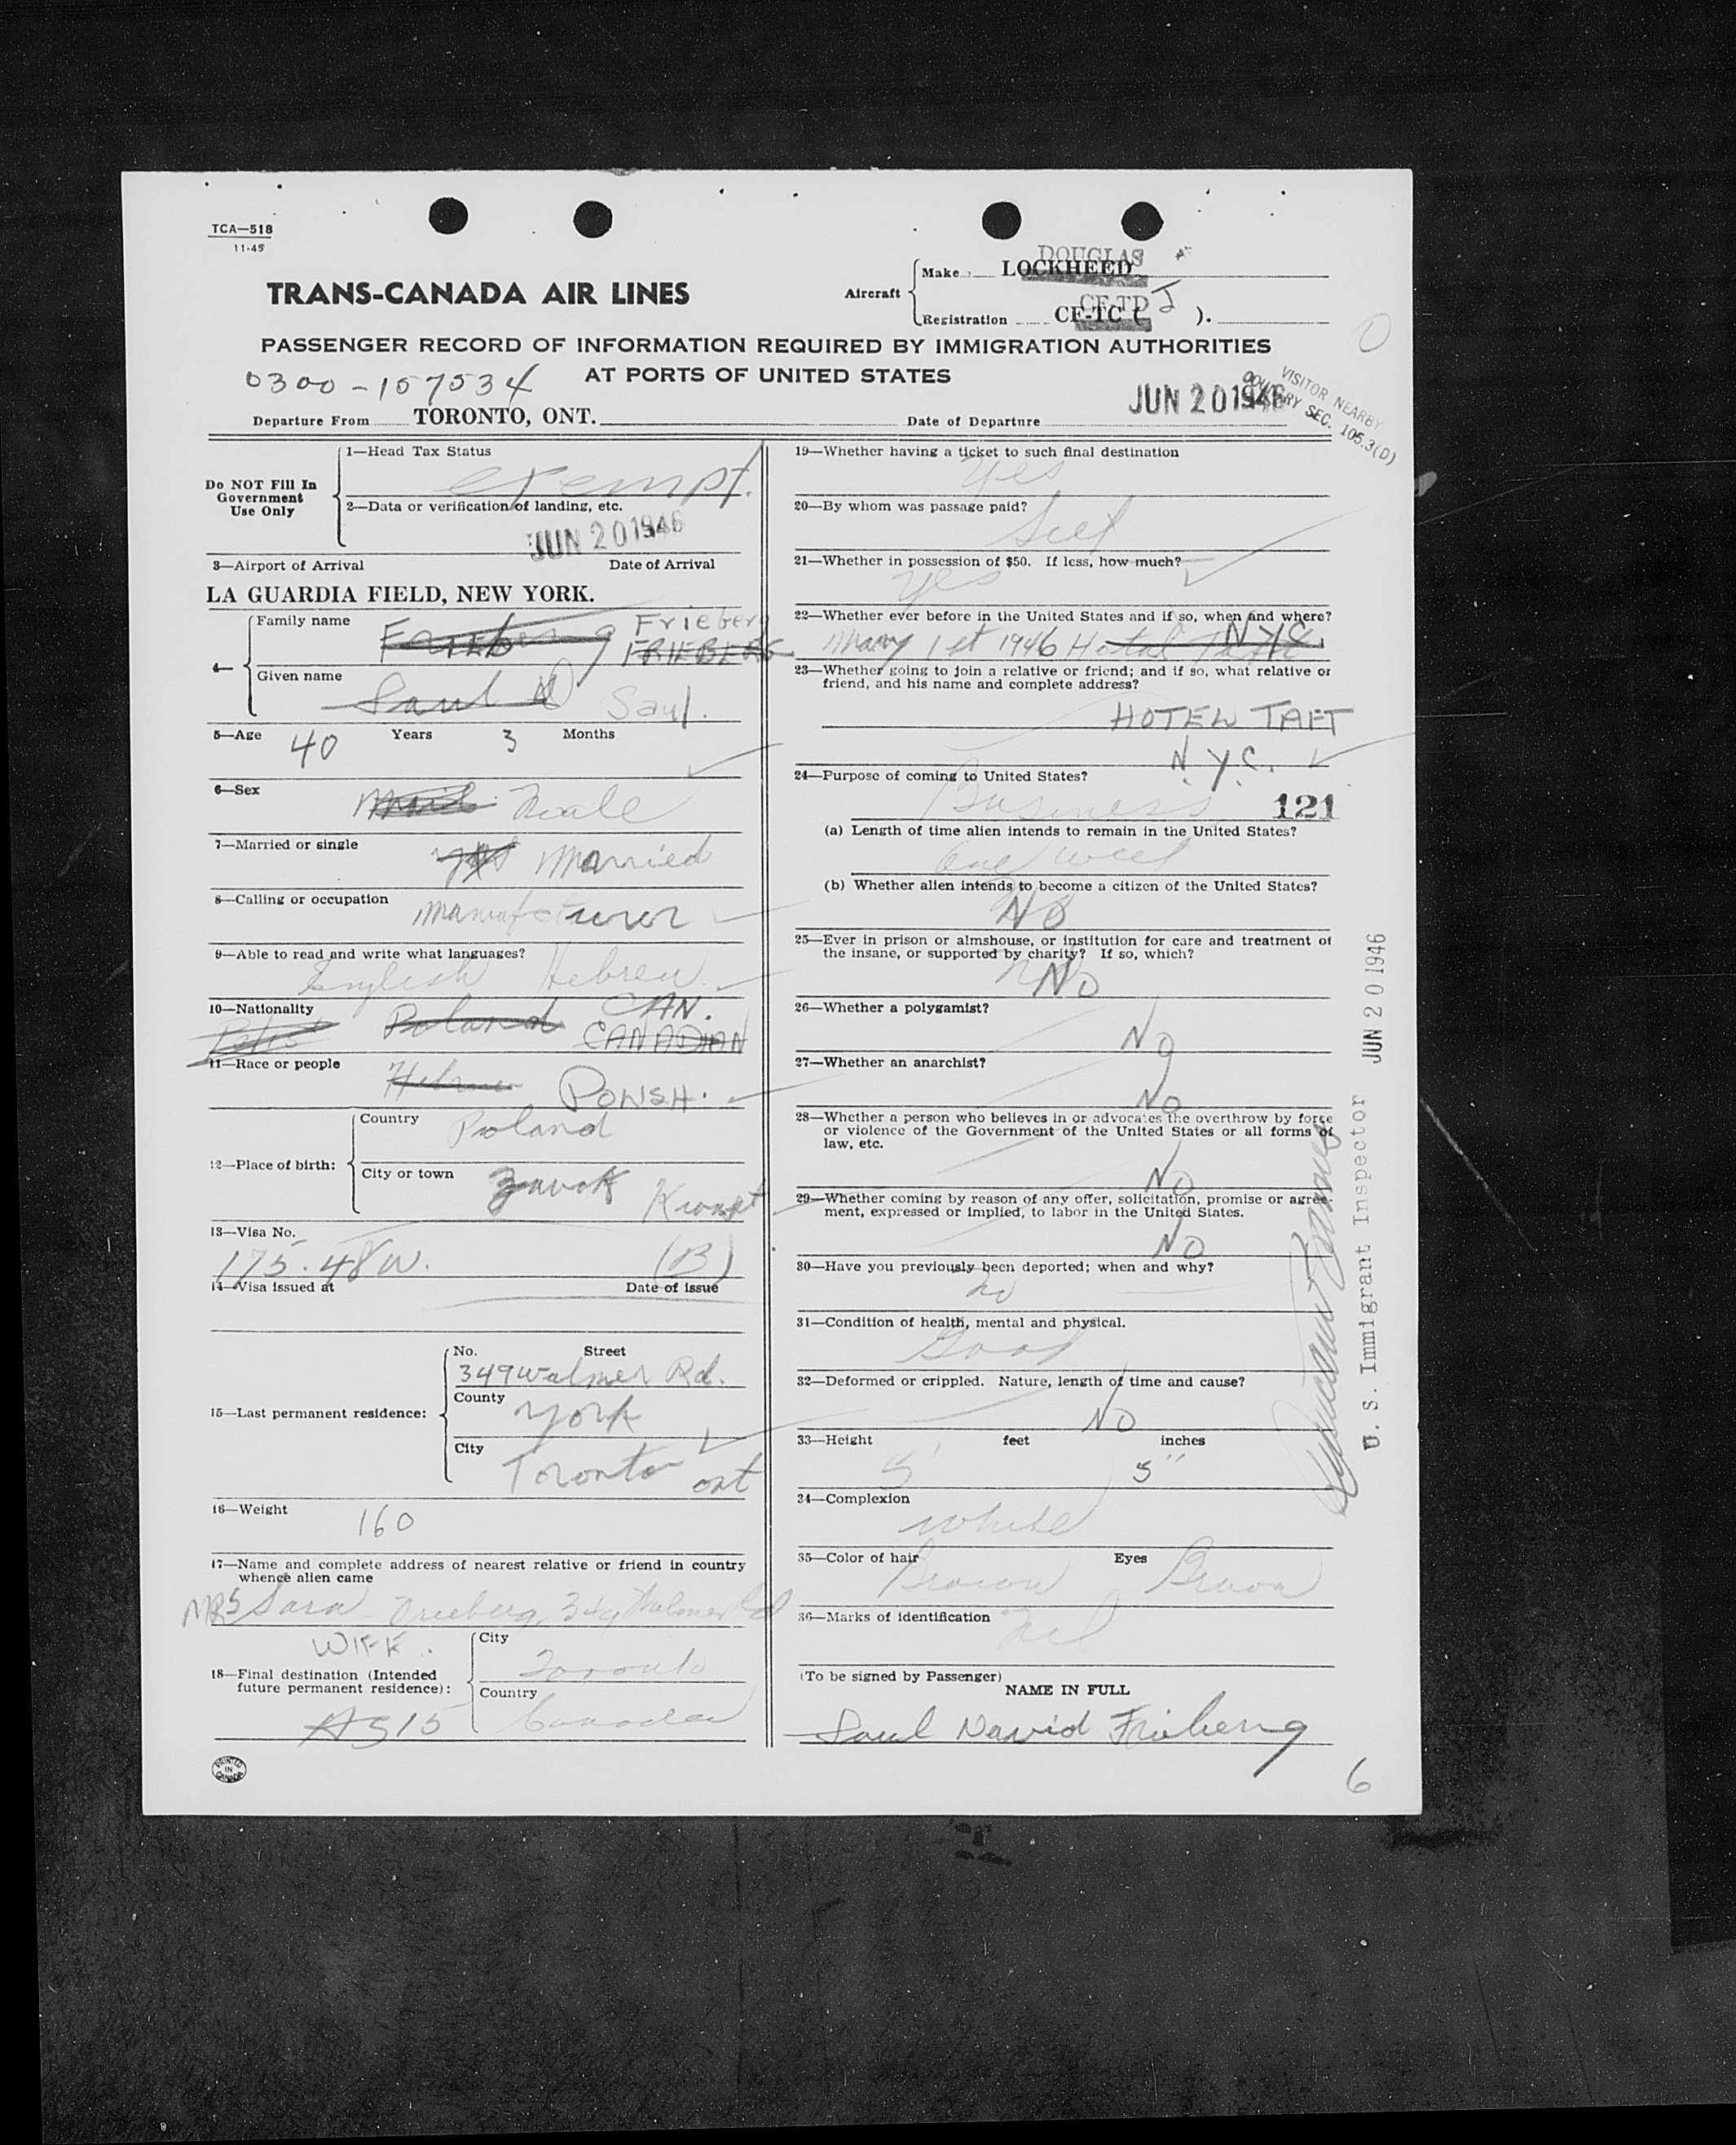 TCA—518
11-45
DOUGLAS
TRANS-CANADA AIR LINES
Aircraft
Make LOCKHEED
CF-TD J
Registration CF-TC ( ).
PASSENGER RECORD OF INFORMATION REQUIRED BY IMMIGRATION AUTHORITIES
AT PORTS OF UNITED STATES
0300-157534
Departure From TORONTO, ONT.
Date of Departure JUN 20 1946
VISITOR NEARBY
COUNTRY SEC. 105.3(D)
Do NOT Fill In
Government
Use Only
1—Head Tax Status
exempt.
2—Data or verification of landing, etc.
JUN 20 1946
3—Airport of Arrival Date of Arrival
LA GUARDIA FIELD, NEW YORK.
4—
Family name
Frieberg
FRIEBERG
Given name
Saul D Saul.
5—Age 40 Years 3 Months
6—Sex
Male
7—Married or single
yes Married
8—Calling or occupation
Manufcturer
9—Able to read and write what languages?
English Hebrew
10—Nationality
Poland CAN.
CANADIAN
11—Race or people
Hebrew POLISH.
12—Place of birth:
Country
Poland
City or town
13—Visa No.
175.48W. (B)
14—Visa issued at Date of issue
15—Last permanent residence:
No. Street
349 Walmer Rd.
County
York
City
Toronto ont
16—Weight
160
17—Name and complete address of nearest relative or friend in country
whence alien came
MRS Sara Frieberg, 349 Walmer Rd
WIFE.
18—Final destination (Intended
future permanent residence):
City
Toronto
Country
Canada
A315
PRINTED
IN
CANADA
19—Whether having a ticket to such final destination
yes
20—By whom was passage paid?
Self
21—Whether in possession of $50. If less, how much?
yes
22—Whether ever before in the United States and if so, when and where?
Many 1st 1946 Hotal Taft N.Y.C.
23—Whether going to join a relative or friend; and if so, what relative or
friend, and his name and complete address?
HOTEL TAFT
N.Y.C.
24—Purpose of coming to United States?
Business
121
(a) Length of time alien intends to remain in the United States?
One week
(b) Whether alien intends to become a citizen of the United States?
No
25—Ever in prison or almshouse, or institution for care and treatment of
the insane, or supported by charity? If so, which?
No
26—Whether a polygamist?
No
27—Whether an anarchist?
No
28—Whether a person who believes in or advocates the overthrow by force
or violence of the Government of the United States or all forms of
law, etc.
No
29—Whether coming by reason of any offer, solicitation, promise or agree-
ment, expressed or implied, to labor in the United States.
No
30—Have you previously been deported; when and why?
no
31—Condition of health, mental and physical.
Good
32—Deformed or crippled. Nature, length of time and cause?
No
33—Height feet inches
5' 5"
34—Complexion
White
35—Color of hair Eyes
Brown Brown
36—Marks of identification
Nil
(To be signed by Passenger)
NAME IN FULL
Saul David Frieberg
6
U. S. Immigrant Inspector JUN 20 1946